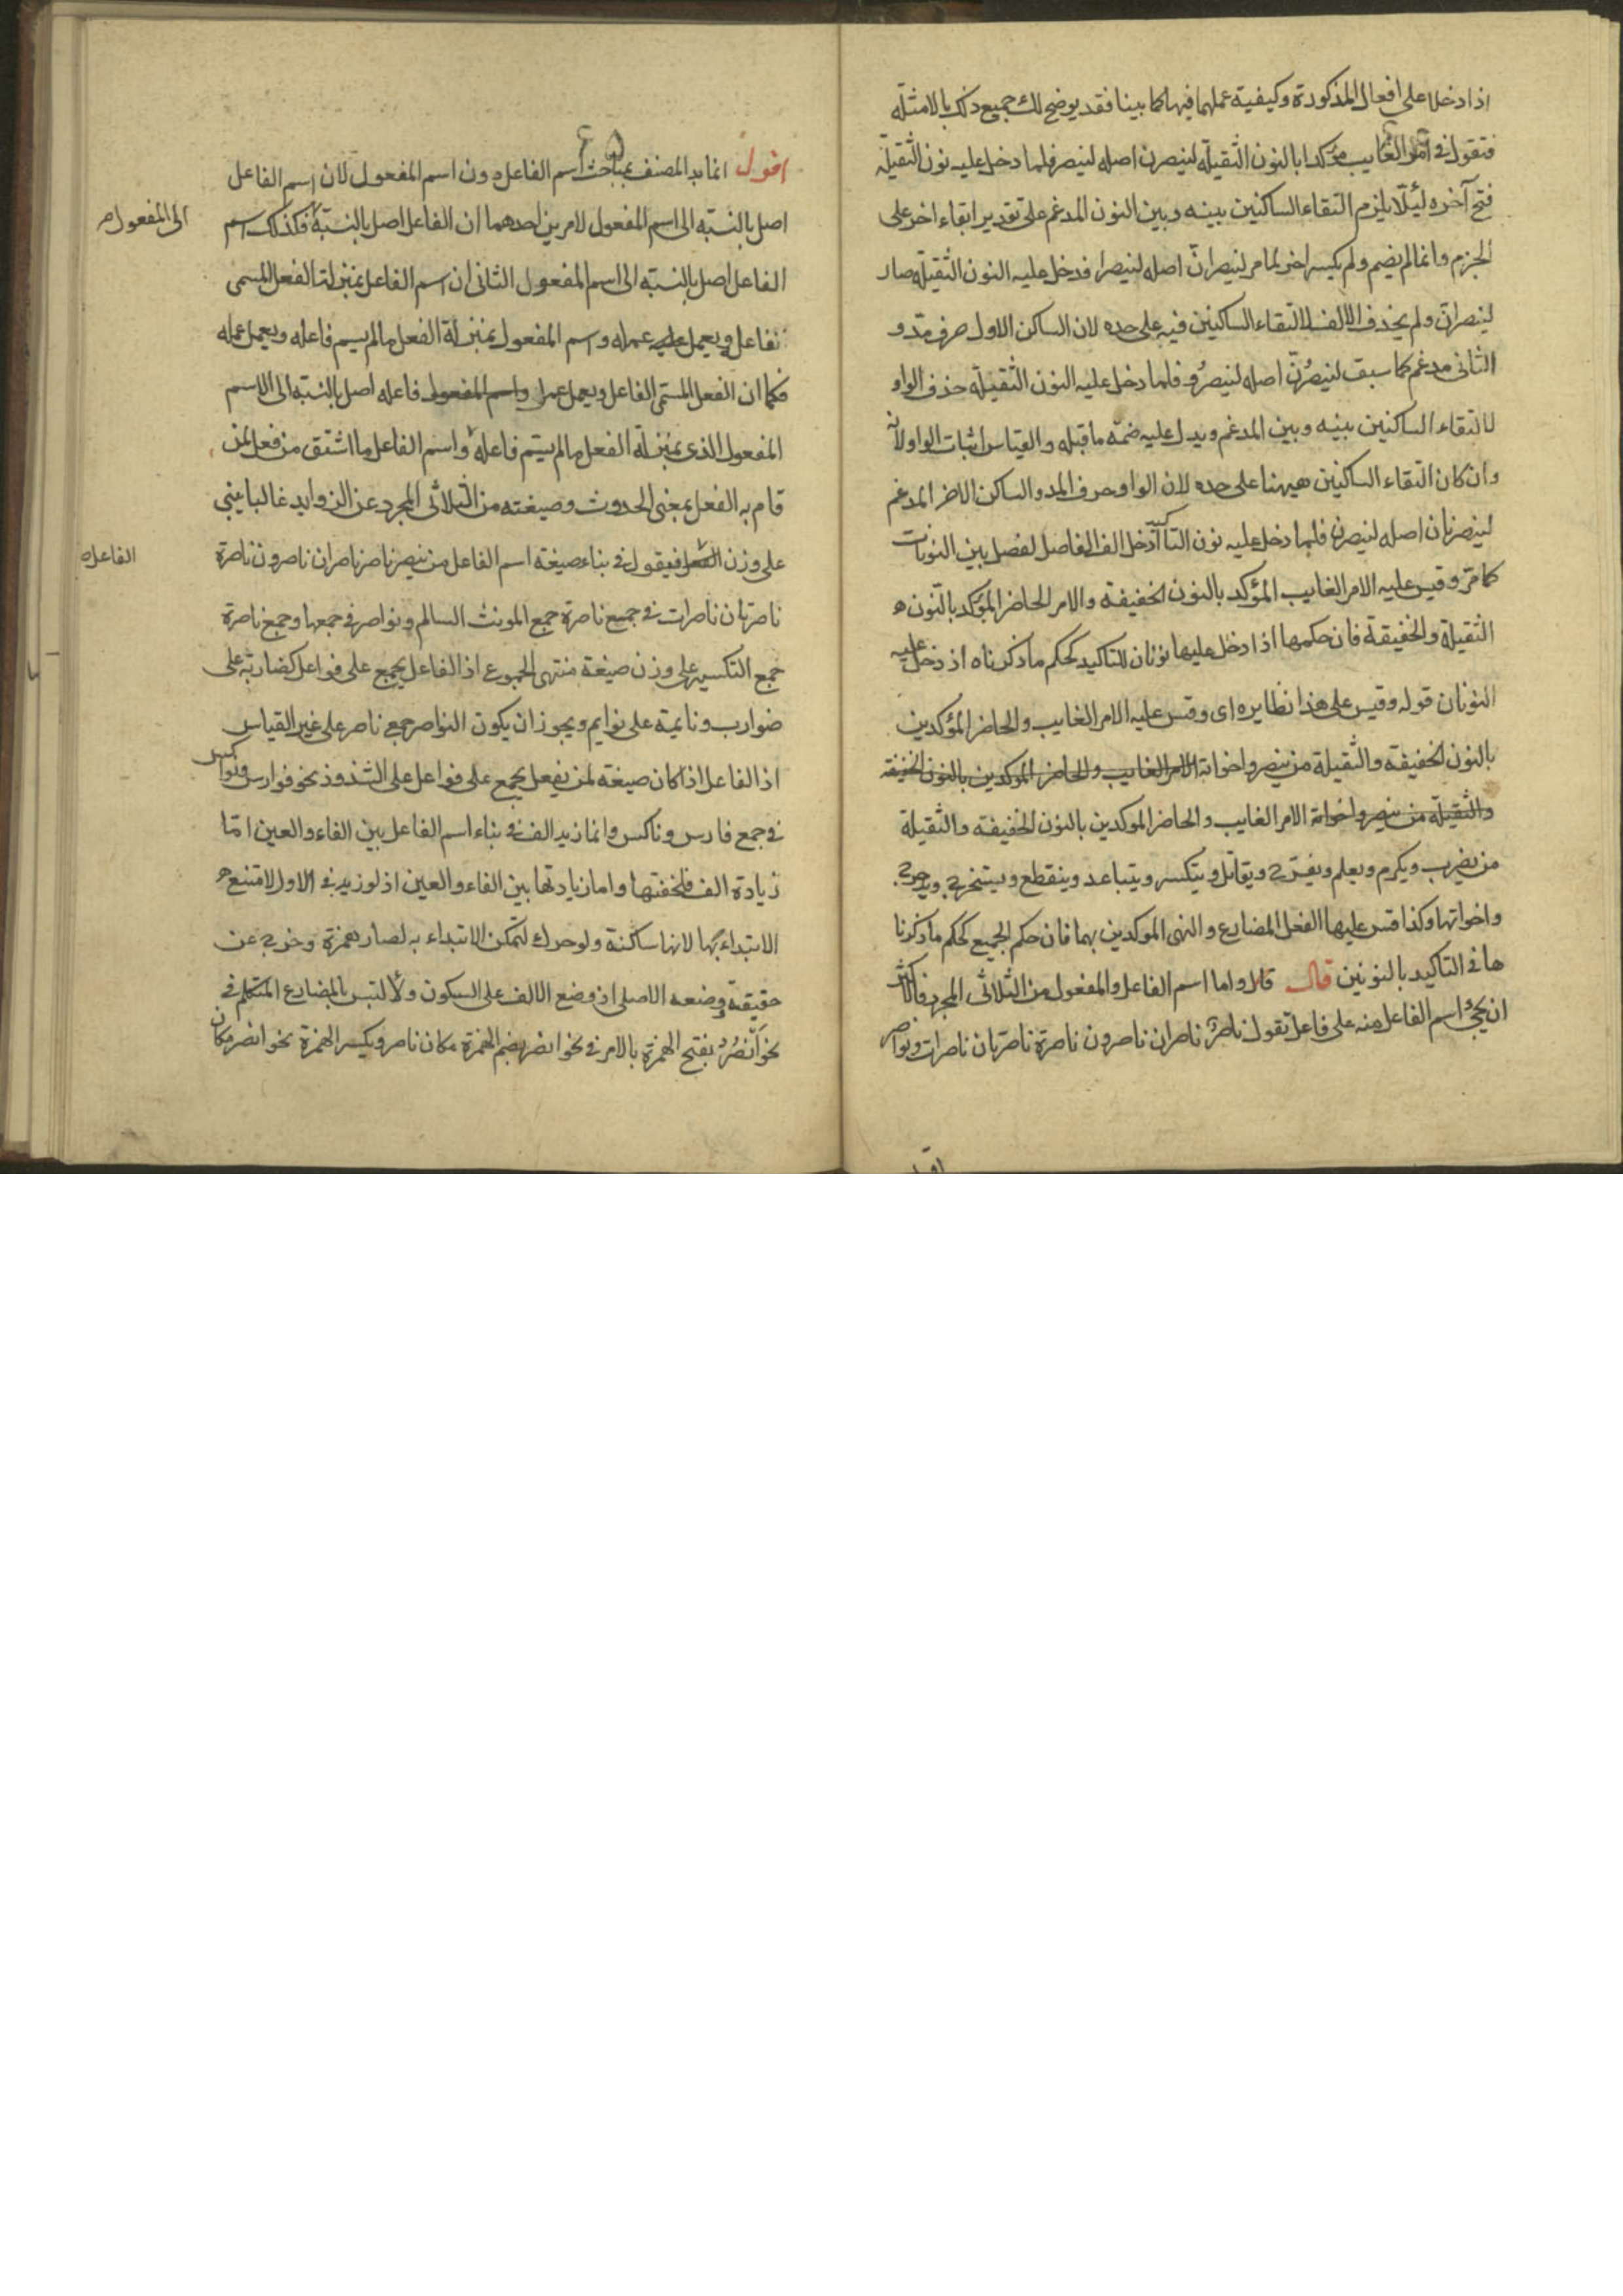 اذا دخلا على افعال المذكورة وكيفية عملهما فيها كما بينا فقد يوضح لك جميع ذلك بالامثلة
فتقول فى امر الغايب مؤكدا بالنون الثقيلة لينصرن اصله لينصر فلما دخل عليه نون الثقيلة
فتح آخره لئلا يلزم التقاء الساكنين بينه وبين النون المدغم على تقدير ابقاء اخر على
الجزم وانما لم يضم ولم يكسر اخر لما مر لينصران اصله لينصرا فدخل عليه النون الثقيلة صار
لينصران ولم يحذف الالف لالتقاء الساكنين فيه على حده لان الساكن الاول حرف مد و
الثانى مدغم كما سبق لينصرن اصله لينصرو فلما دخل عليه النون الثقيلة حذف الواو
لالتقاء الساكنين بينه وبين المدغم ويدل عليه ضمة ما قبله والقياس اثبات الواو لانه
وان كان التقاء الساكنين هيهنا على حده لان الواو حرف المد والساكن الاخر المدغم
لينصرنان اصله لينصرن فلما دخل عليه نون التاكيد ادخل الف الفاصل لفصل بين النونات
كما مر وقس عليه الامر الغايب المؤكد بالنون الخفيفة والامر الحاضر المؤكد بالنون
الثقيلة والخفيفة فان حكمها اذا دخل عليها نونان للتاكيد كحكم ما ذكرناه اذ دخل عليه
النونان قوله وقس على هذا نظايره اى وقس عليه الامر الغايب والحاضر المؤكدين
بالنون الخفيفة والثقيلة من ينصر واخواته الامر الغايب والحاضر الموكدين بالنون الخفيفة
والثقيلة من ينصر واخواته الامر الغايب والحاضر الموكدين بالنون الخفيفة والثقيلة
من يضرب ويكرم ويعلم ويفرح ويقاتل ويتكسر ويتباعد وينقطع ويستخرج ويدحرج
واخواتها وكذا قس عليها الفعل المضارع والنهى الموكدين بهما فان حكم الجميع كحكم ما ذكرنا
ها فى التاكيد بالنونين قال واما اسم الفاعل والمفعول من الثلاثى المجرد فالاكثر
ان يجئ اسم الفاعل منه على فاعل تقول ناصر ناصران ناصرون ناصرة ناصرتان ناصرات ونواصر
اقول انما بدا المصنف بمباحث اسم الفاعل دون اسم المفعول لان اسم الفاعل
اصل بالنسبة الى اسم المفعول لامرين احدهما ان الفاعل اصل بالنسبة فكذلك اسم
الى المفعول
الفاعل اصل بالنسبة الى اسم المفعول الثانى ان اسم الفاعل بمنزلة الفعل المسمى
ويعمل عليه عمله واسم المفعول بمنزلة الفعل ما لم يسم فاعله ويعمل عمله
فكما ان الفعل المسمى الفاعل ويعمل عمل واسم المفعول فاعله اصل بالنسبة الى الاسم
المفعول الذى بمنزلة الفعل ما لم يسم فاعله واسم الفاعل ما اشتق من فعل لمن
قام به الفعل بمعنى الحدوث وصيغته من الثلاثى المجرد عن الزوايد غالبا يجئ
على وزن فيقول فى بناء صيغة اسم الفاعل من ينصر ناصر ناصران ناصرون ناصرة
الفاعل
ناصرتان ناصرات فى جميع ناصرة جمع المونث السالم ونواصر فى جمعها وجمع ناصرة
جمع التكسير على وزن صيغة منتهى الجموع اذ الفاعل يجمع على فواعل كضاربة على
ضوارب ونايمة على نوايم ويجوز ان يكون النواصر جمع ناصر على غير القياس
اذ الفاعل اذا كان صيغة لمن يفعل يجمع على فواعل على الشذوذ نحو فوارس ونواكس
فى جمع فارس وناكس وانما زيد الف فى بناء اسم الفاعل بين الفاء والعين اما
زيادة الف فلخفتها واما زيادتها بين الفاء والعين اذ لو زيد فى الاول لامتنع
الابتداء بها لانها ساكنة ولو حرك لتمكن الابتداء به لصار همزة وخرج عن
حقيقة وضعه الاصلى اذ وضع الالف على السكون ولالتبس بالمضارع المتكلم فى
نحو انصر بفتح الهمزة بالامر فى نحو انصر بضم الهمزة مكان ناصر وبكسر الهمزة نحو انصر مكان